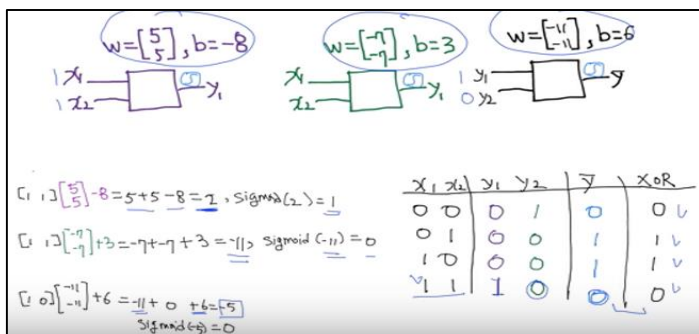 w=[5 5], b=-8
w=[-7 -7], b=3
w=[-11 -11], b=6
1 x1 S y1
1 x2
x1 S y1
x2
1 y1 S ȳ
0 y2
[1 1][5 5]-8=5+5-8=2, sigmoid(2)=1
[1 1][-7 -7]+3=-7+-7+3=-11, sigmoid(-11)=0
[1 0][-11 -11]+6=-11+0 +6=-5
sigmoid(-5)=0
x1 x2 y1 y2 ȳ XOR
0 0 0 1 0 0 ✓
0 1 0 0 1 1 ✓
1 0 0 0 1 1 ✓
✓ 1 1 1 0 0 0 ✓